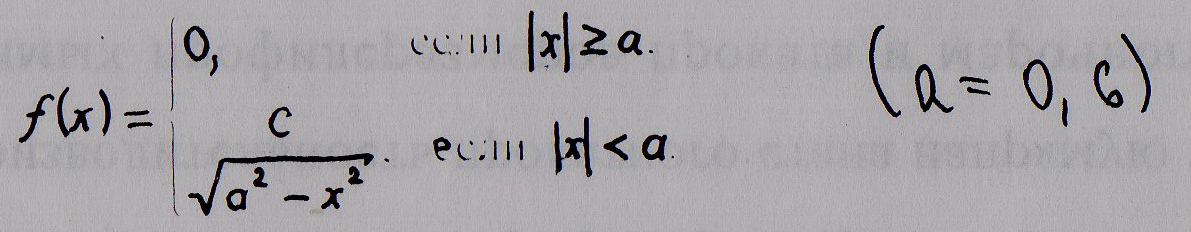 0, если |x| ≥ a.
f(x) =
c / √(a² − x²). если |x| < a.
(a = 0,6)